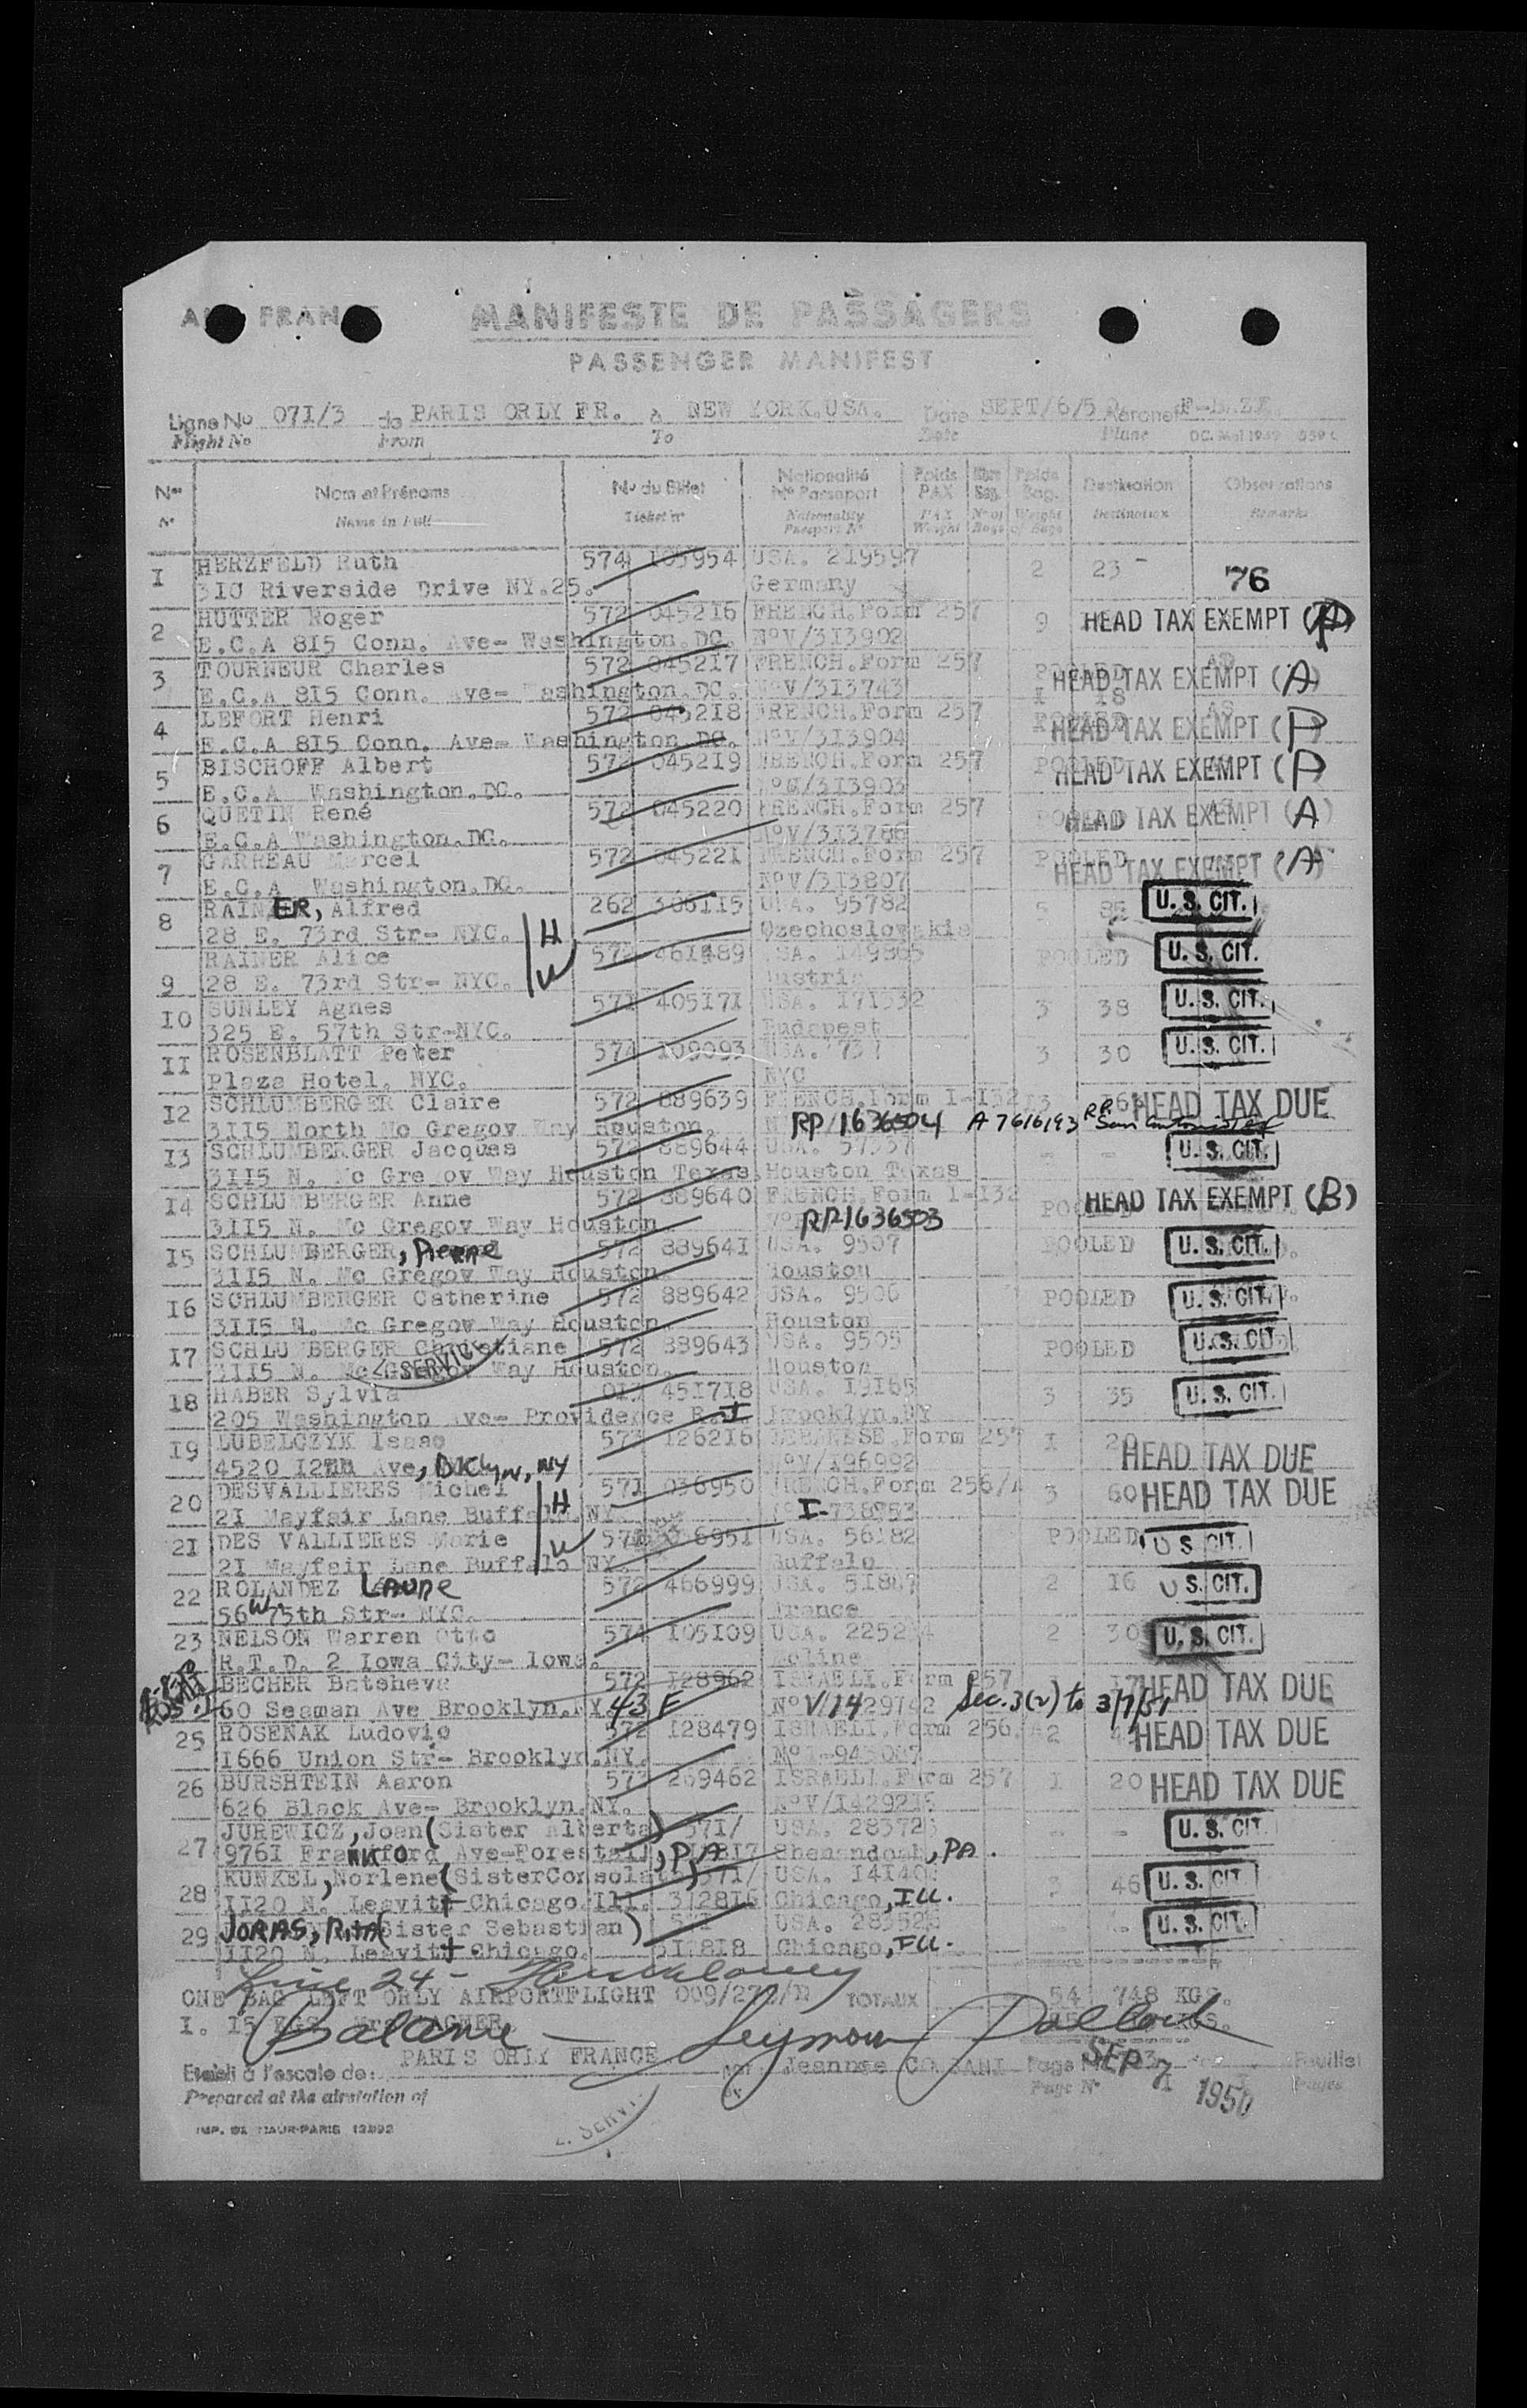 MANIFESTE DE PASSAGERS
PASSENGER MANIFEST
Ligne No 071/3 de PARIS ORLY FR. à NEW YORK.USA. Date SEPT/6/50 Aéronef
Flight No From To Date Plane
Nos Nom et Prénoms No du Billet Nationalité No Passeport Poids PAX Poids Bag. Destination Observations
No Name in Full Ticket no Nationality Passport No PAX Weight No of Bags Weight of Bags Destination Remarks
1 HERZFELD Ruth 574 105954 USA. 219597 2 23 -
310 Riverside Drive NY.25. Germany 76
2 HUTTER Roger 572 045216 FRENCH.Form 257 9 HEAD TAX EXEMPT (A)
E.C.A 815 Conn. Ave- Washington.DC. NoV/313902
3 TOURNEUR Charles 572 045217 FRENCH.Form 257 POOLED HEAD TAX EXEMPT (A)
E.C.A 815 Conn. Ave- Washington.DC. NoV/313743 1 18
4 LEFORT Henri 572 045218 FRENCH.Form 257 POOLED HEAD TAX EXEMPT (A)
E.C.A 815 Conn. Ave- Washington DC. NoV/313904
5 BISCHOFF Albert 572 045219 FRENCH.Form 257 POOLED HEAD TAX EXEMPT (A)
E.C.A Washington.DC. 313903
6 QUETIN René 572 045220 FRENCH.Form 257 POOLED HEAD TAX EXEMPT (A)
E.C.A Washington.DC. NoV/313786
7 GARREAU Marcel 572 045221 FRENCH.Form 257 POOLED HEAD TAX EXEMPT (A)
E.C.A Washington.DC. NoV/313807
8 RAINER, Alfred 262 306115 USA. 95782 5 85 U. S. CIT.
28 E. 73rd Str- NYC. H Czechoslovakia
RAINER Alice 572 461489 USA. POOLED U. S. CIT.
9 28 E. 73rd Str- NYC. W Austria
10 SUNLEY Agnes 571 405171 USA. 171532 3 38 U. S. CIT.
325 E. 57th Str-NYC. Budapest
11 ROSENBLATT Peter 574 109093 USA. 3 30 U. S. CIT.
Plaza Hotel. NYC. NYC
12 SCHLUMBERGER Claire 572 889639 FRENCH.Form I-132 13 HEAD TAX DUE
3115 North Mc Gregov Way Houston. RP/1636504 A 7616193 RP San Antonio
13 SCHLUMBERGER Jacques 572 889644 USA. 57337 - - U. S. CIT.
3115 N. Mc Gregov Way Houston Texas. Houston Texas
14 SCHLUMBERGER Anne 572 889640 FRENCH.Form I-132 HEAD TAX EXEMPT (B)
3115 N. Mc Gregov Way Houston RP1636503
15 SCHLUMBERGER, Pierre 572 889641 USA. 9507 POOLED U. S. CIT.
3115 N. Mc Gregov Way Houston. Houston
16 SCHLUMBERGER Catherine 572 889642 USA. 9506 POOLED U. S. CIT.
3115 N. Mc Gregov Way Houston. Houston
17 SCHLUMBERGER Christiane 572 889643 USA. 9505 POOLED U. S. CIT.
3115 N. Mc Gregov Way Houston. Houston
18 HABER Sylvia 017 451718 USA. 19165 3 35 U. S. CIT.
205 Washington Ave- Providence R.I Brooklyn.NY
19 LUBELCZYK Isaac 573 126216 LEBANESE.Form 257 1 HEAD TAX DUE
4520 12th Ave, BKlyn, NY NoV/196992
20 DESVALLIERES Michel H 571 036950 FRENCH.Form 256/A 3 60 HEAD TAX DUE
21 Mayfair Lane Buffalo.NY. I-738953
21 DES VALLIERES Marie W 571 036951 USA. 56182 POOLED U S CIT.
21 Mayfair Lane Buffalo NY. Buffalo
22 ROLANDEZ Laure 572 466999 USA. 51887 2 16 U S. CIT.
56 W 75th Str- NYC. France
23 NELSON Warren Otto 574 105109 USA. 2 30 U. S. CIT.
R.T.D. 2 Iowa City- Iowa. Moline
BECHER Batsheva 572 128962 ISRAELI.Form 257 1 17 HEAD TAX DUE
60 Seaman Ave Brooklyn.NY. 43 F No V/1429142 Sec. 3(2) to 3/7/51
25 ROSENAK Ludovic 572 128479 ISRAELI.Form 256. 2 HEAD TAX DUE
1666 Union Str- Brooklyn.NY.
26 BURSHTEIN Aaron 573 269462 ISRAELI.Form 257 1 20 HEAD TAX DUE
626 Black Ave- Brooklyn.NY. NoV/1429216
27 JUREWICZ, Joan (Sister Alberta) 571/ USA. 283723 - - U. S. CIT.
9761 Frankford Ave-Forestall, PA Shenandoah, PA.
28 KUNKEL, Norlene (SisterConsolata) 571/ USA. 141408 3 46 U. S. CIT.
1120 N. Leavitt-Chicago.Ill. 312816 Chicago, ILL.
29 JORAS, Rita (Sister Sebastian) 571 USA. 283528 - U. S. CIT.
1120 N. Leavitt Chicago. 312818 Chicago, ILL.
Line 24 -
ONE BAG LEFT ORLY AIRPORTFLIGHT 009/27 TOTAUX 54 748 KGS.
Balance - Seymour Pollock
Etabli à l'escale de: PARIS ORLY FRANCE Jeannee Page No
Prepared at the airstation of Page No Pages
SEP 7 1950